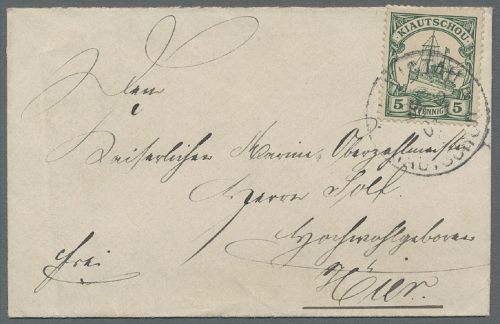 KIAUTSCHOU
5 PFENNIG 5
Den
Kaiserlichen Marine-Oberzahlmeister
Herrn Solf.
Hochwohlgeboren
frei
Hier.